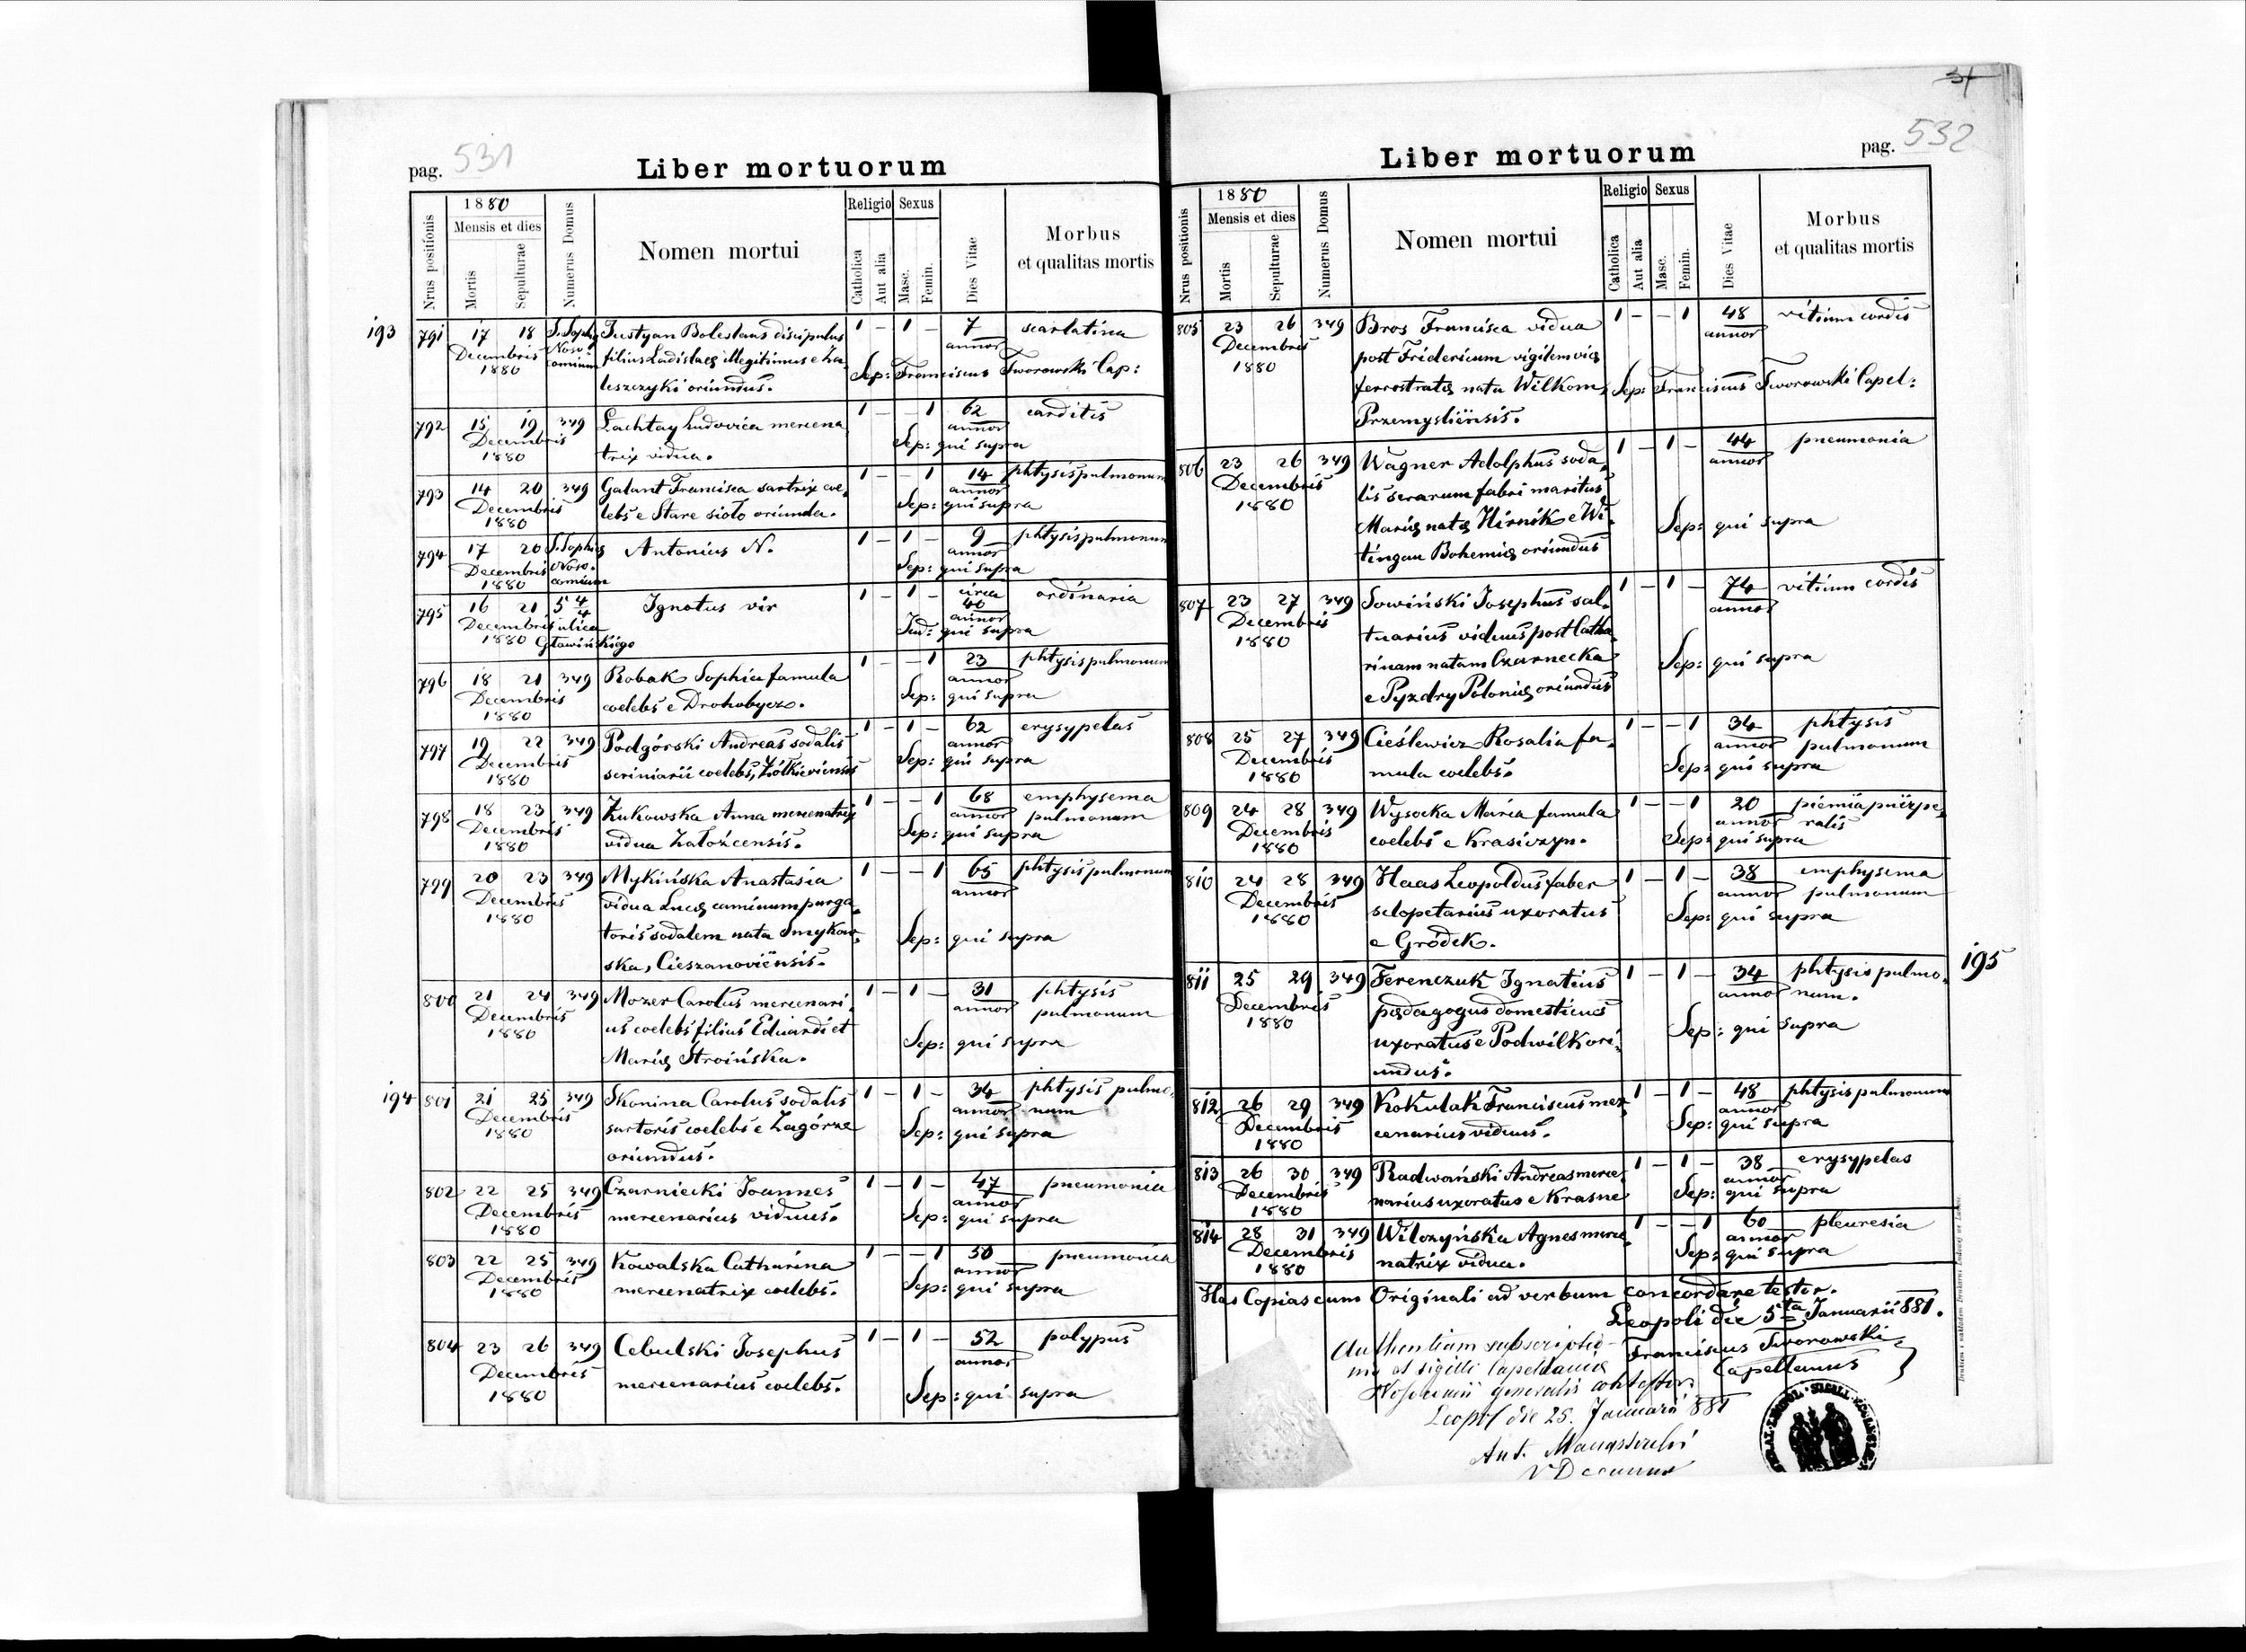 pag. 531
Liber mortuorum
Nrus positionis
1880
Mensis et dies
Mortis
Sepulturae
Numerus Domus
Nomen mortui
Religio
Catholica
Aut alia
Sexus
Masc.
Femin.
Dies Vitae
Morbus
et qualitas mortis
193 791 17 18 S. Sophię Justyan Boleslaus discipulus 1 – 1 – 7 scarlatina
Decembris Noso- filius Ladislaę illegitimus e Za annor
1880 comium leszczyki oriundus. Sep: Franciscus Tworowski Cap:
792 15 19 349 Lachtay Ludovica mercena 1 – – 1 62 carditis
Decembris trix vidua. annor
1880 Sep: qui supra
793 14 20 349 Galant Francisca sartrix coe 1 – – 1 14 phtysis pulmonum
Decembris lebs e Stare sioło oriunda. annor
1880 Sep: qui supra
794 17 20 S. Sophię Antonius N. 1 – 1 – 9 phtysis pulmonum
Decembris Noso- annor
1880 comium Sep: qui supra
795 16 21 5 4/4 Ignotus vir 1 – 1 – circa 40 ordinaria
Decembris ulica annor
1880 Głowińskiego qui supra
796 18 21 349 Robak Sophia famula 1 – – 1 23 phtysis pulmonum
Decembris coelebs e Drohobycz. annor
1880 Sep: qui supra
797 19 22 349 Podgórski Andreas sodalis 1 – 1 – 62 erysypelas
Decembris scriniarii coelebs, Żółkieviensis annor
1880 Sep: qui supra
798 18 23 349 Żukowska Anna mercenatrix 1 – – 1 68 emphysema
Decembris vidua Załoźcensis. annor pulmonum
1880 Sep: qui supra
799 20 23 349 Mykińska Anastasia 1 – – 1 65 phtysis pulmonum
Decembris vidua Lucę caminum purga annor
1880 toris sodalem nata Smykow Sep: qui supra
ska, Cieszanoviënsis.
800 21 24 349 Mozer Carolus mercenari 1 – 1 – 31 phtysis
Decembris us coelebs filius Eduardi et annor pulmonum
1880 Marię Stroińska. Sep: qui supra
194 801 21 25 349 Skonina Carolus sodalis 1 – 1 – 34 phtysis pulmo
Decembris sartoris coelebs e Zagórze annor num
1880 oriundus. Sep: qui supra
802 22 25 349 Czarniecki Joannes 1 – 1 – 47 pneumonia
Decembris mercenarius viduus. annor
1880 Sep: qui supra
803 22 25 349 Kowalska Catharina 1 – – 1 50 pneumonia
Decembris mercenatrix coelebs. annor
1880 Sep: qui supra
804 23 26 349 Cebulski Josephus 1 – 1 – 52 polypus
Decembris mercenarius coelebs. annor
1880 Sep: qui supra
pag. 532
Liber mortuorum
Nrus positionis
1880
Mensis et dies
Mortis
Sepulturae
Numerus Domus
Nomen mortui
Religio
Catholica
Aut alia
Sexus
Masc.
Femin.
Dies Vitae
Morbus
et qualitas mortis
805 23 26 349 Bros Francisca vidua 1 – – 1 48 vitium cordis
Decembris post Fridericum vigilem vię annor
1880 ferrostratę nata Wilkom, Sep: Franciscus Tworowski Capel:
Przemysliënsis.
806 23 26 349 Wagner Adolphus soda 1 – 1 – 44 pneumonia
Decembris lis serarum fabri maritus annor
1880 Marię natę Hirnik e Wi Sep: qui supra
tingau Bohemię oriundus
807 23 27 349 Sowiński Josephus sal 1 – 1 – 74 vitium cordis
Decembris tuarius viduus post Catha annor
1880 rinam natam Czarnecka Sep: qui supra
e Pyzdry Polonię oriundus
808 25 27 349 Cieślewicz Rosalia fa 1 – – 1 34 phtysis
Decembris mula coelebs. annor pulmonum
1880 Sep: qui supra
809 24 28 349 Wysocka Maria famula 1 – – 1 20 piemia puërpe
Decembris coelebs e Krasiczyn. annor ralis
1880 Sep: qui supra
810 24 28 349 Haas Leopoldus faber 1 – 1 – 38 emphysema
Decembris sclopetarius uxoratus annor pulmonum
1880 e Gródek. Sep: qui supra
811 25 29 349 Ferenczuk Ignatius 1 – 1 – 34 phtysis pulmo 195
Decembris pędagogus domesticus annor num.
1880 uxoratus e Podwilk ori Sep: qui supra
undus.
812 26 29 349 Kokulak Franciscus mer 1 – 1 – 48 phtysis pulmonum
Decembris cenarius viduus. annor
1880 Sep: qui supra
813 26 30 349 Radwański Andreas merce 1 – 1 – 38 erysypelas
Decembris narius uxoratus e Krasne annor
1880 Sep: qui supra
814 28 31 349 Wilczyńska Agnes merce 1 – – 1 60 pleuresia
Decembris natrix vidua. annor
1880 Sep: qui supra
Has Copias cum Originali ad verbum concordare testor.
Leopoli die 5ta Januarii 881.
Franciscus Tworowski
Capellanus
Authentiam subscriptio-
nis et sigilli Capellanię
Nosocomii generalis contestor
Leopol die 25. Januarii 881
Ant.
V Decanus